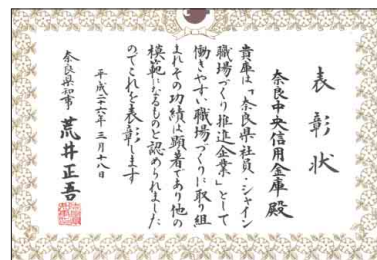 表彰状
奈良中央信用金庫 殿
貴庫は「奈良県社員・シャイン
職場づくり推進企業」として
働きやすい職場づくりに取り組
まれその功績は顕著であり他の
模範になるものと認められました
のでこれを表彰します
平成二十六年三月十八日
奈良県知事 荒井正吾